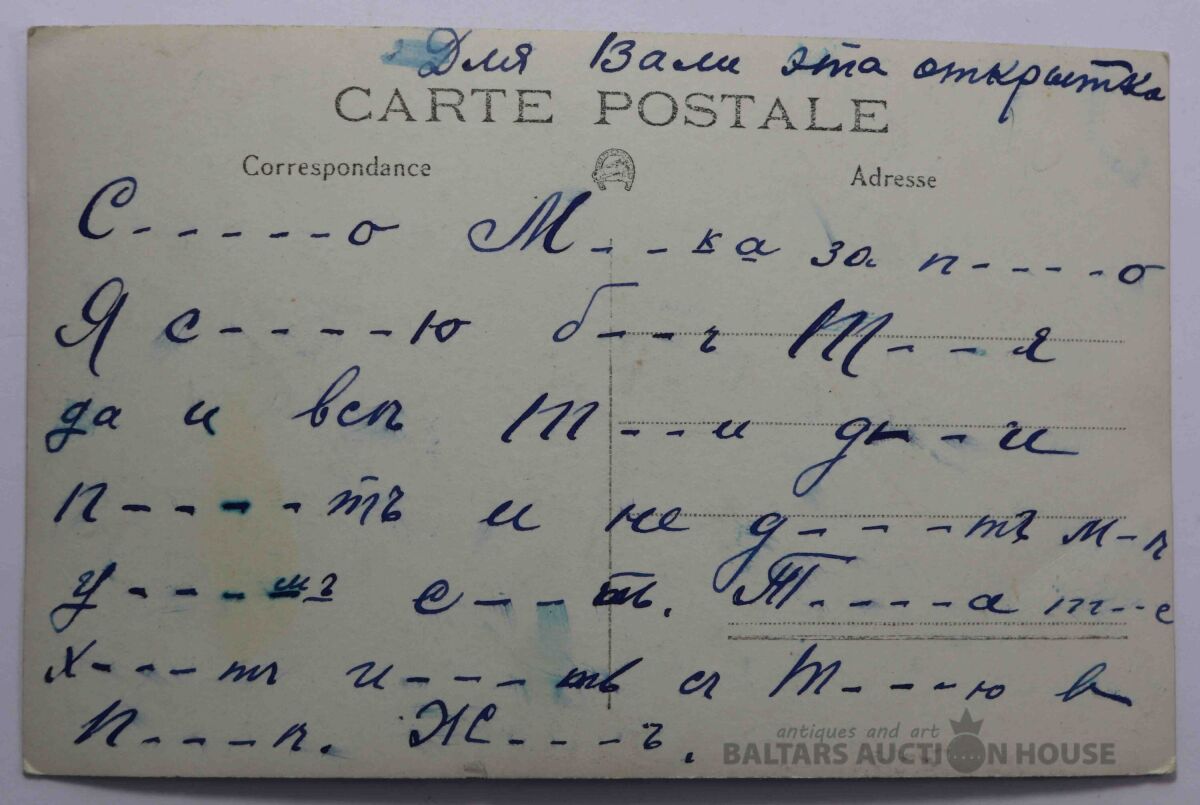 Для Вали эта открытка
CARTE POSTALE
Correspondance
Adresse
С - - - - - - о М - - - к а за п - - - - - о
Я с - - - - - ю б - - - ъ Т - - - я
да и всѣ Т - - - и д - - и
п - - - - - тъ и не д - - - - тъ м - ѣ
у - - - - мъ с - - - ть. Т - - - - - а т - - е
х - - - - тъ и - - - - ть съ Т - - - - ю въ
п - - - - ѣ. Ж - - - - ъ.
antiques and art
BALTARS AUCTION HOUSE